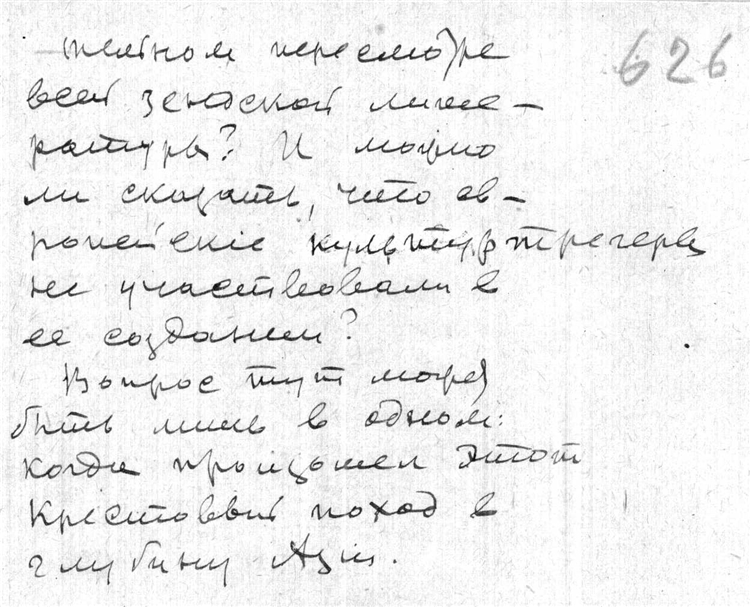 626
тельном пересмотре
всей зендской лите-
ратуры? И можно
ли сказать, что ев-
ропейскіе культуртрегеры
не участвовали в
ее создании?
Вопрос тут может
быть лишь в одном:
когда произошел этот
Крестовый поход в
глубину Азіи.